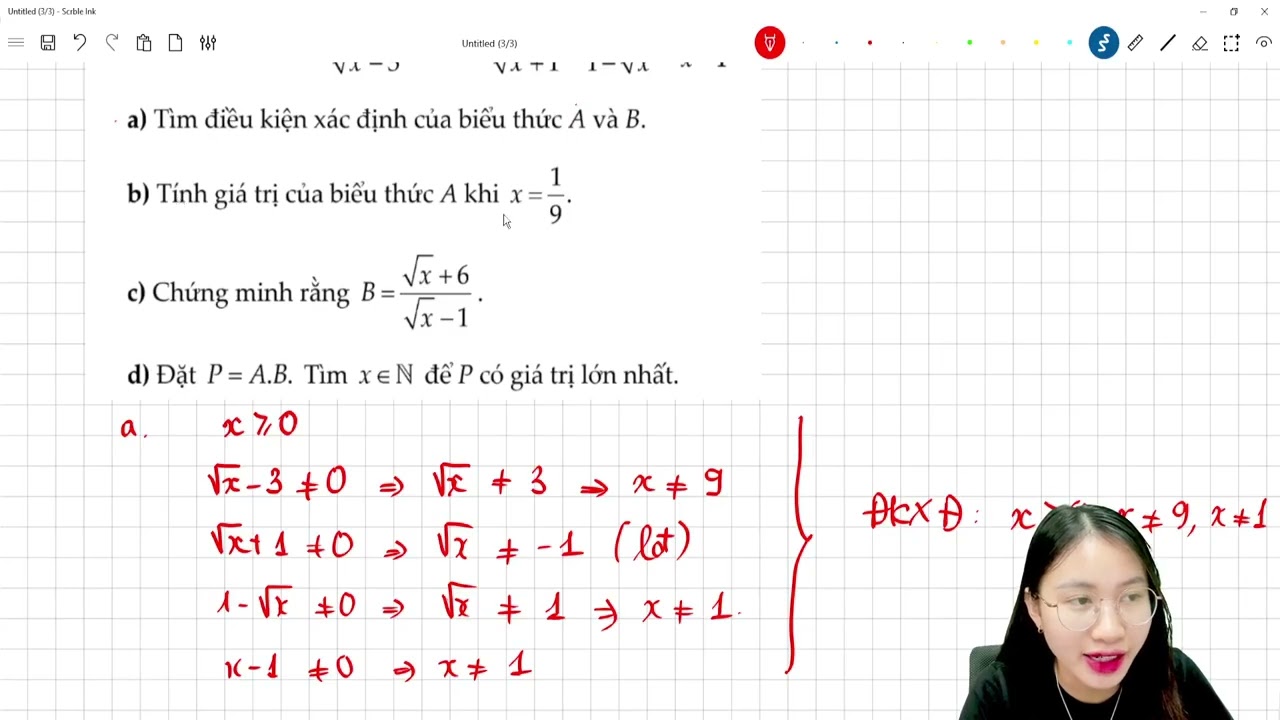 Untitled (3/3) - Scrble Ink
Untitled (3/3)
a) Tìm điều kiện xác định của biểu thức A và B.
b) Tính giá trị của biểu thức A khi x = 1/9.
c) Chứng minh rằng B = (√x + 6)/(√x − 1).
d) Đặt P = A.B. Tìm x ∈ ℕ để P có giá trị lớn nhất.
a. x ⩾ 0
√x − 3 ≠ 0 ⇒ √x ≠ 3 ⇒ x ≠ 9
√x + 1 ≠ 0 ⇒ √x ≠ −1 (lđt)
1 − √x ≠ 0 ⇒ √x ≠ 1 ⇒ x ≠ 1.
x − 1 ≠ 0 ⇒ x ≠ 1
ĐKXĐ: x ≠ 9, x ≠ 1